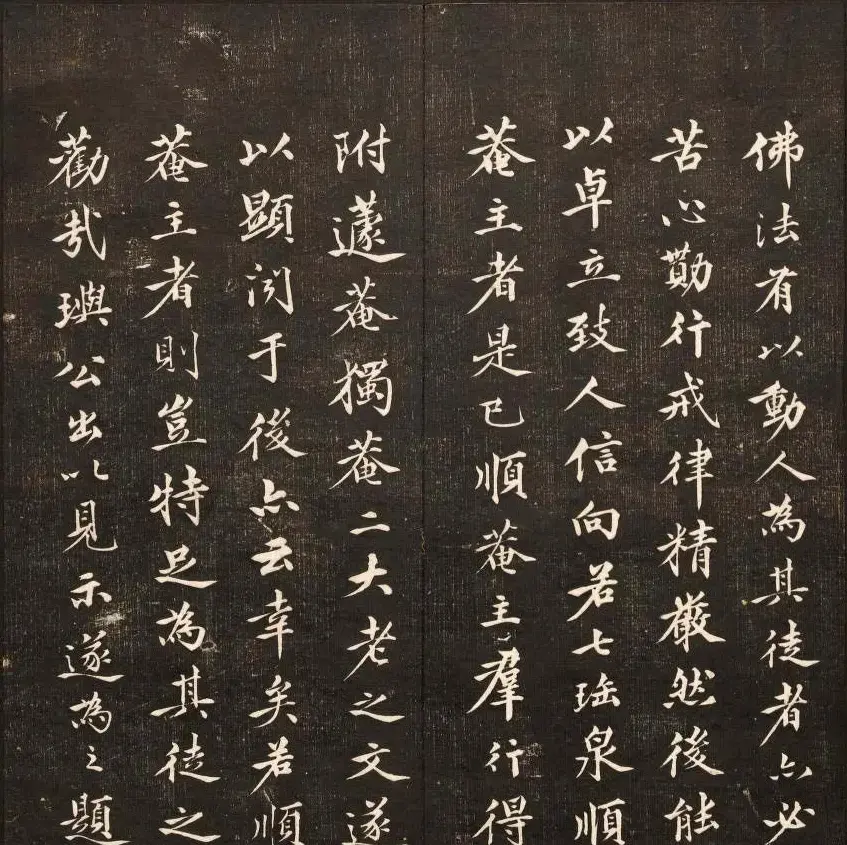 佛法有以動人為其徒者亦必
苦心勤行戒律精嚴然後能
以卓立致人信向若七瑤泉順
菴主者是已順菴主羣行得
附蘧菴獨菴二大老之文遂
以顯閔于後亦云幸矣若順
菴主者則豈特足為其徒之
勸哉璵公出以見示遂為之題